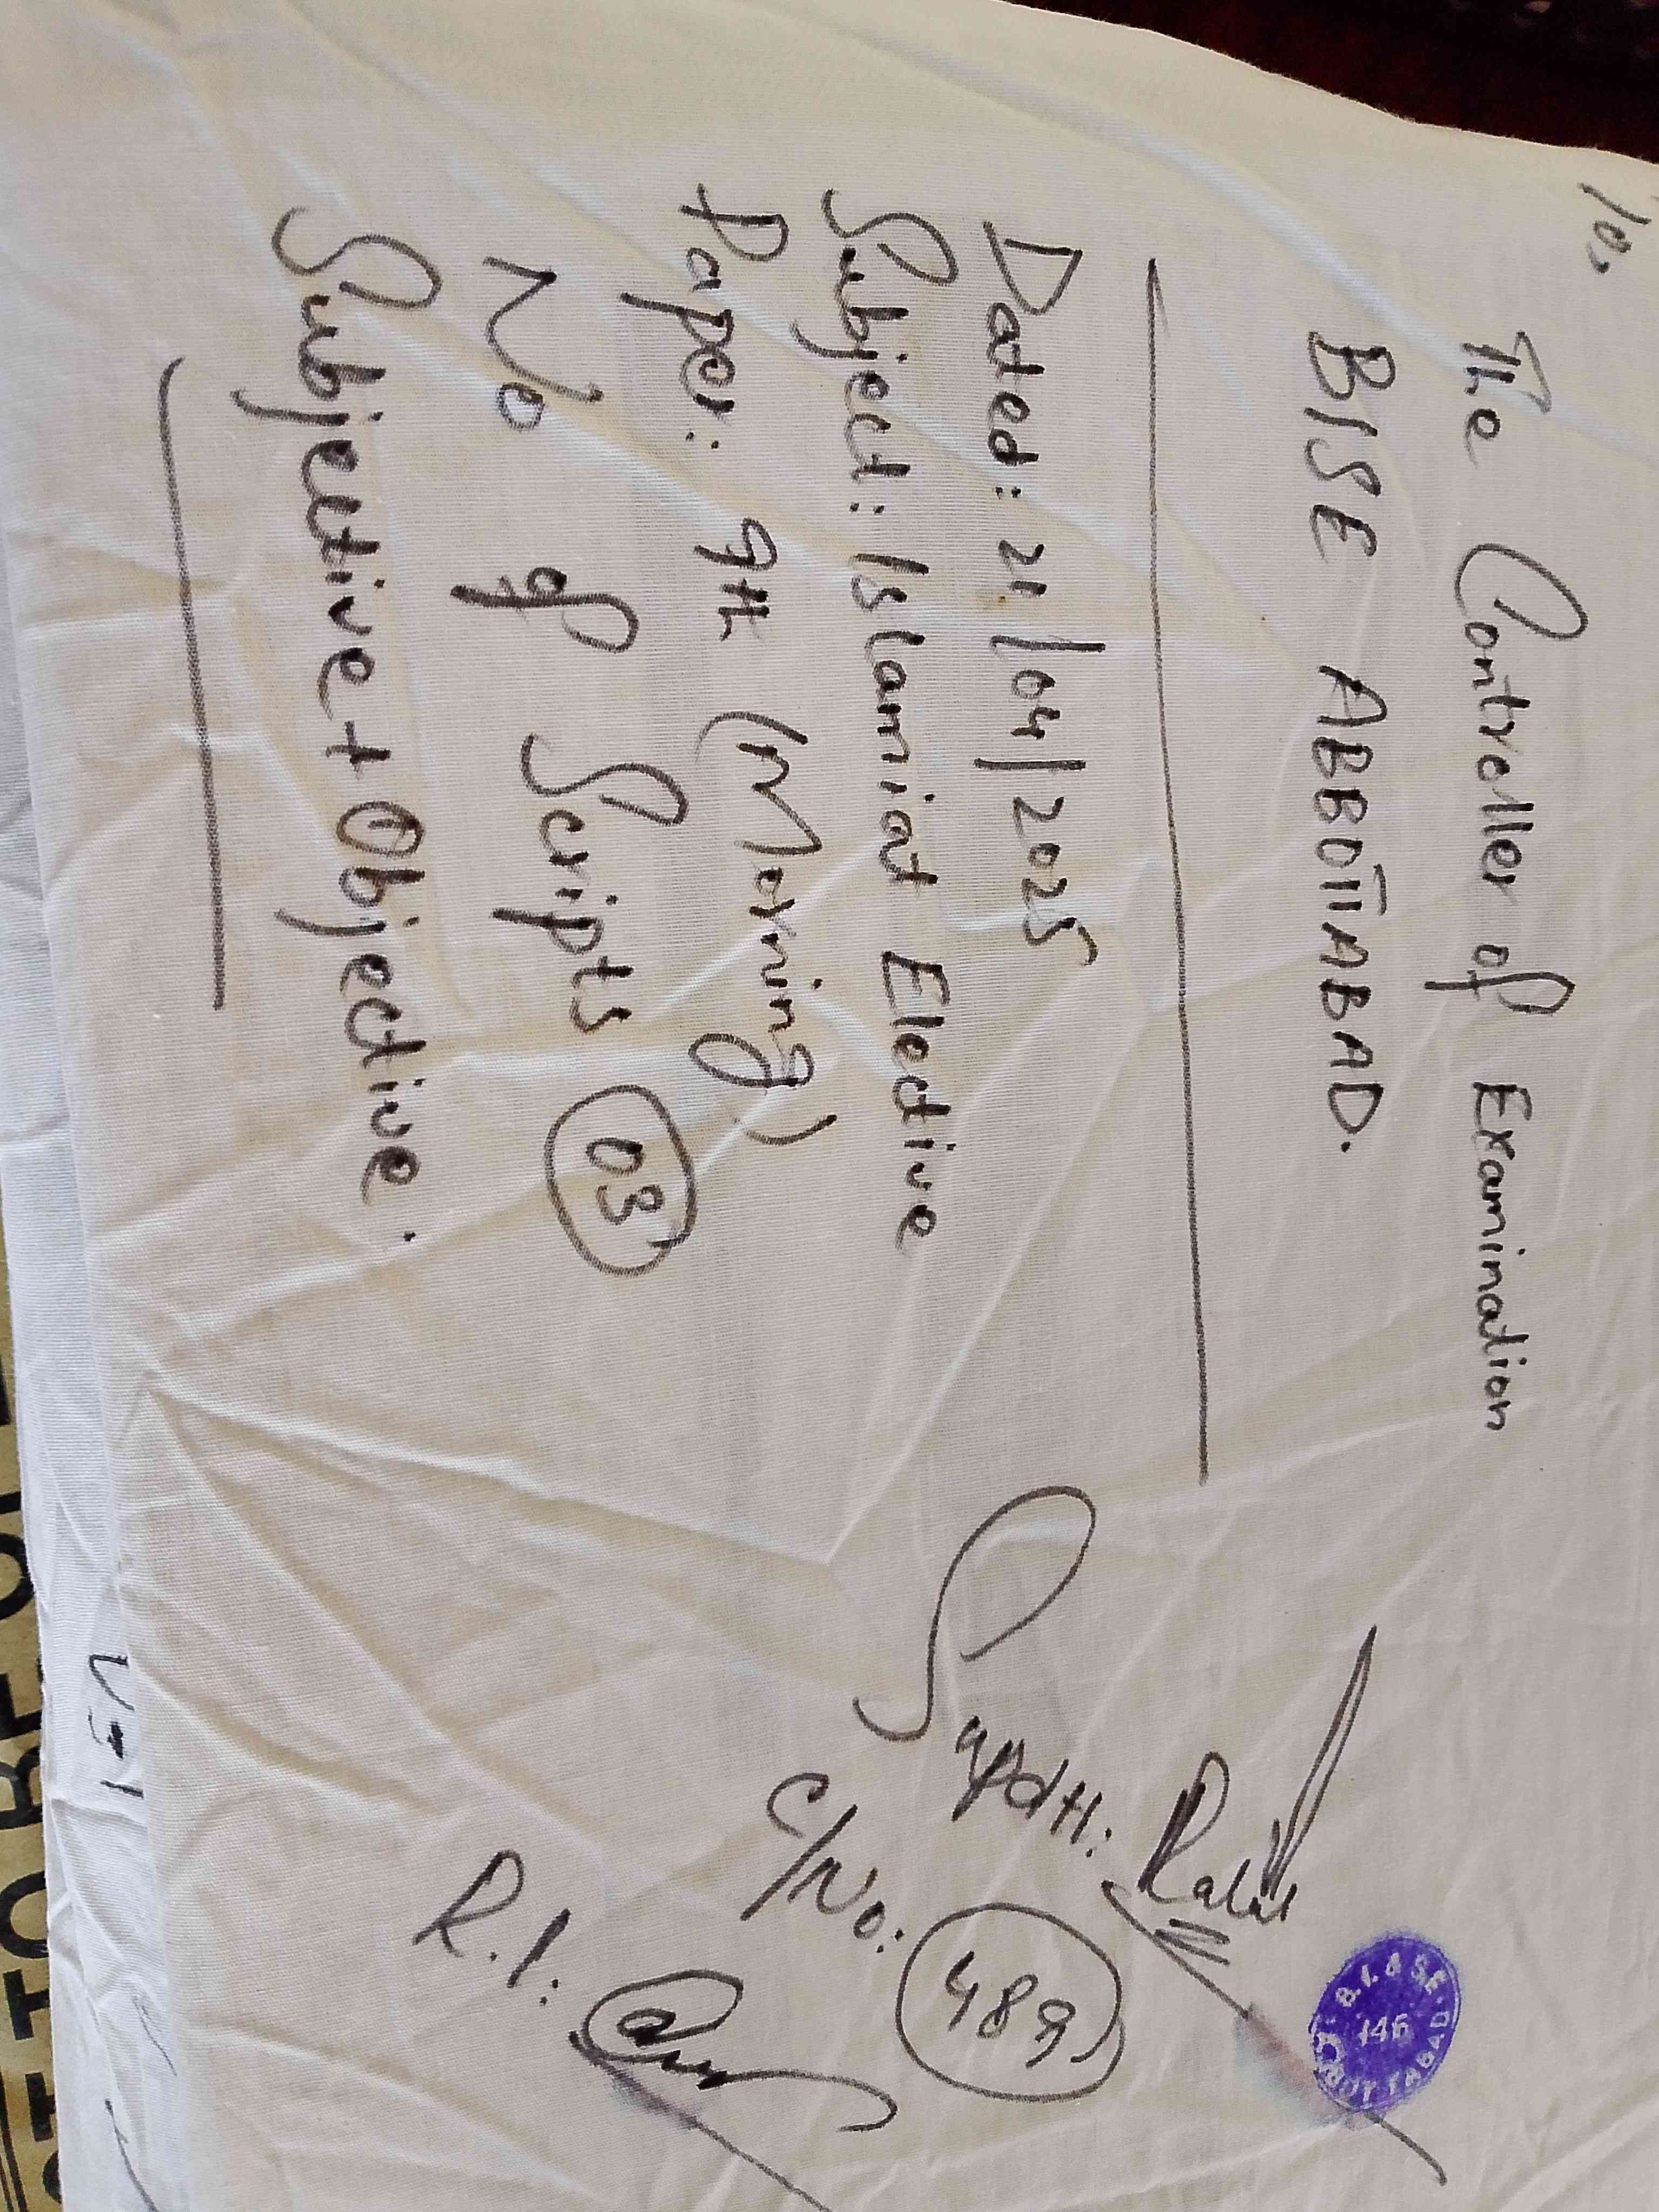 To.
The Controller of Examination
BISE ABBOTTABAD.
Dated: 21/04/2025
Subject: Islamiat Elective
Paper: 9th (Morning)
No of Scripts 03
Subjective + Objective.
Supdtt:
C/No: 489
R.I:
B.I.&SE.
146